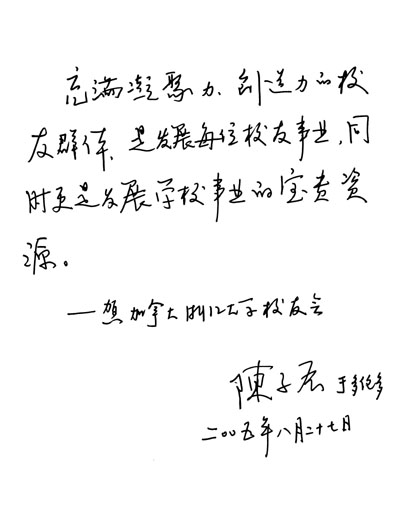 充满凝聚力、创造力的校
友群体，是发展每位校友事业，同
时更是发展学校事业的宝贵资
源。
——贺加拿大浙江大学校友会
陳子辰 于多伦多
二〇〇五年八月二十七日